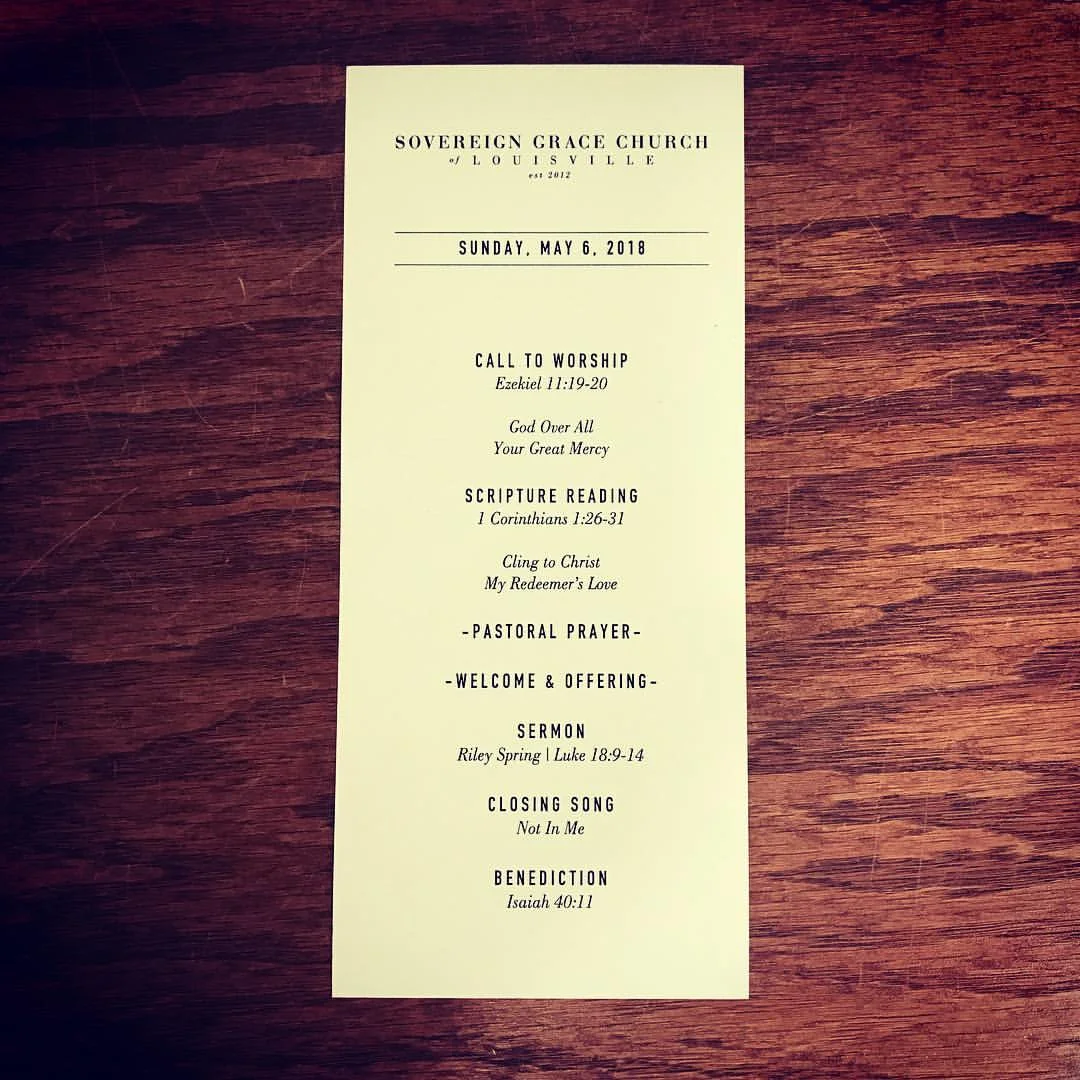 SOVEREIGN GRACE CHURCH
of LOUISVILLE
est 2012
SUNDAY, MAY 6, 2018
CALL TO WORSHIP
Ezekiel 11:19-20
God Over All
Your Great Mercy
SCRIPTURE READING
1 Corinthians 1:26-31
Cling to Christ
My Redeemer's Love
-PASTORAL PRAYER-
-WELCOME & OFFERING-
SERMON
Riley Spring | Luke 18:9-14
CLOSING SONG
Not In Me
BENEDICTION
Isaiah 40:11